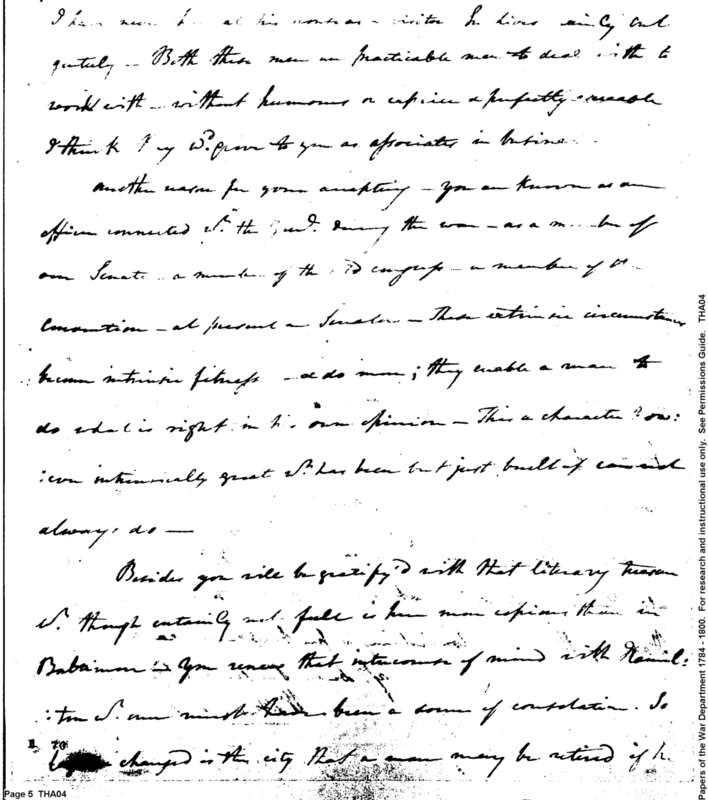 I have at his house as a visitor He lives and
quietly – Both these men are practicable men to deal with to
work with – without humours or caprice & perfectly
I think they wd. prove to you as associates in
another reason for your accepting – you are known as an
officer connected wh. the during the war – as a member of
our Senate a member of the congress – a member of
Convention – at present a Senator – These extrinsic circumstances
become intrinsic fitness – & do more; they enable a man to
do what is right in his own opinion – This a character how:
:ever intrinsically great wh. has been but just built up cannot
always do —
Besides you will be gratify'd with that literary treasure
wh. though certainly not full is here more copious than in
Baltimore – You renew that intercourse of mind with Hamil:
:ton wh. must have been a source of consolation. So
changed is the city that a man may be retired if he
Page 5 THA04
Papers of the War Department 1784 - 1800. For research and instructional use only. See Permissions Guide. THA04